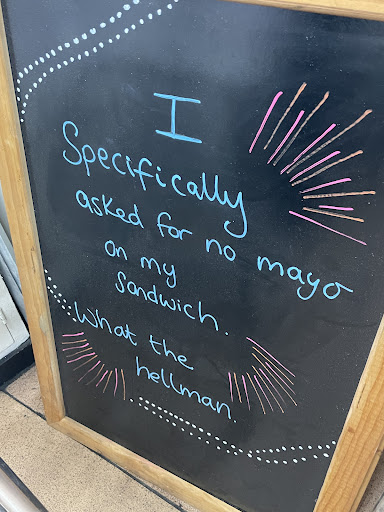 I
Specifically
asked for no mayo
on my
sandwich.
What the
hellman.